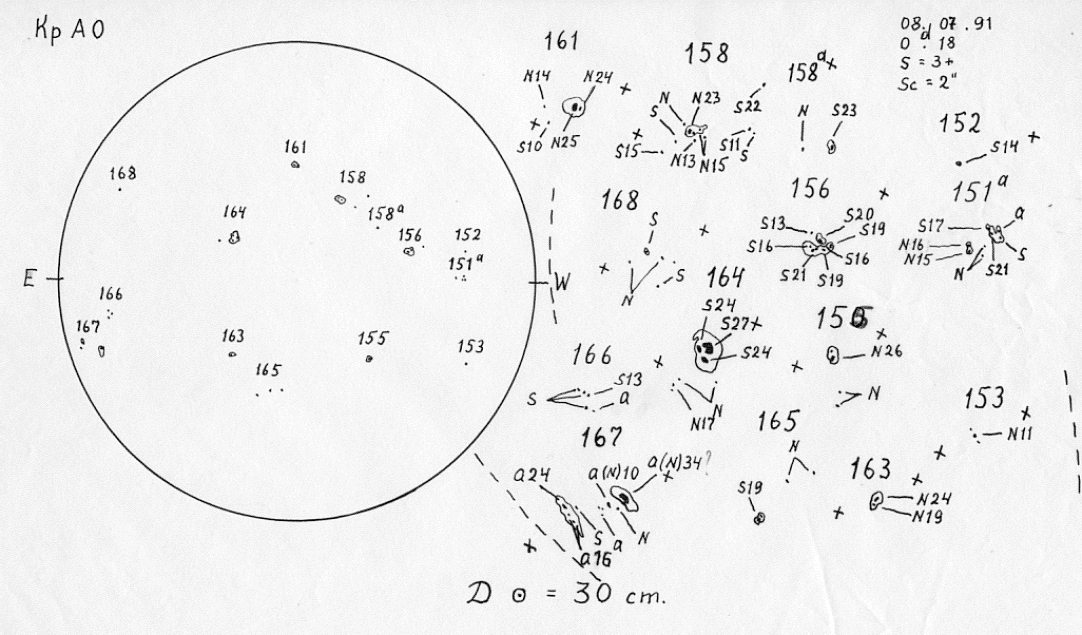 Kp AO
08. 07 . 91
0 d. 18
S = 3+
Sc = 2"
161
N14
N24
S10
N25
158
N
N23
S
S22
S15
N13
N15
S11
S
158a
N
S23
152
S14
168
S
N
S
156
S13
S20
S19
S16
S16
S21
S19
151a
a
S17
N16
N15
N
S21
S
164
S24
S27
S24
N17
N
155
N26
N
166
S
S13
a
153
N11
167
a24
a(N)10
a(N)34?
S
a
N
a16
165
N
S19
163
N24
N19
161
168
158
164
158a
156
152
151a
E
W
166
167
163
155
153
165
D ⊙ = 30 cm.